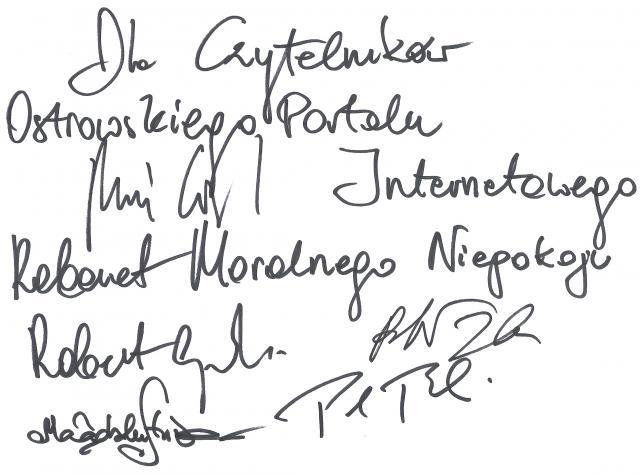 Dla Czytelników
Ostrowskiego Portalu
Internetowego
Kabaret Moralnego Niepokoju
Robert